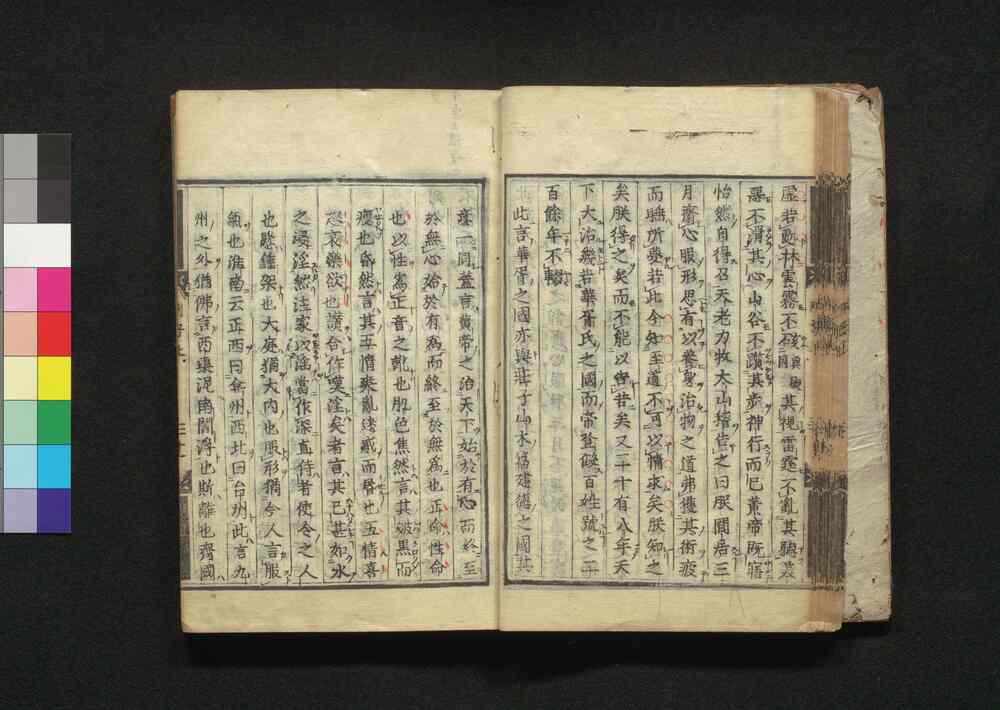 虛若處林雲霧不硋與礙同其視雷霆不亂其聽美
惡不滑其心山谷不躓其步神行而已黃帝既寤
怡然自得召天老力牧太山稽告之曰朕閒居三
月齋心服形思有以養身治物之道弗獲其術疲
而睡所夢若此今知至道不可以情求矣朕知之
矣朕得之矣而不能以告若矣又二十有八年天
下大治幾若華胥氏之國而帝登假百姓號之二
百餘年不輟
此言華胥之國亦與莊子山木篇建德之國其
意一同蓋言黃帝之治天下始於有心而終至
於無心始於有為而終至於無為也正命性命
也以性為正音之訛也肌色焦然言其皴黑而
瘦也昏然言其五情爽亂緒惑而昏也五情喜
怒哀樂欲也讚合作嘆淫矣者言其已甚如水
之浸淫然注家以淫當作深直侍者使令之人
也懸鍾架也大庭猶大內也服形猶今人言服
氣也淮南云正西曰弇州西北曰台州此言九
州之外猶佛言西瞿泥南閻浮也斯離也齊國